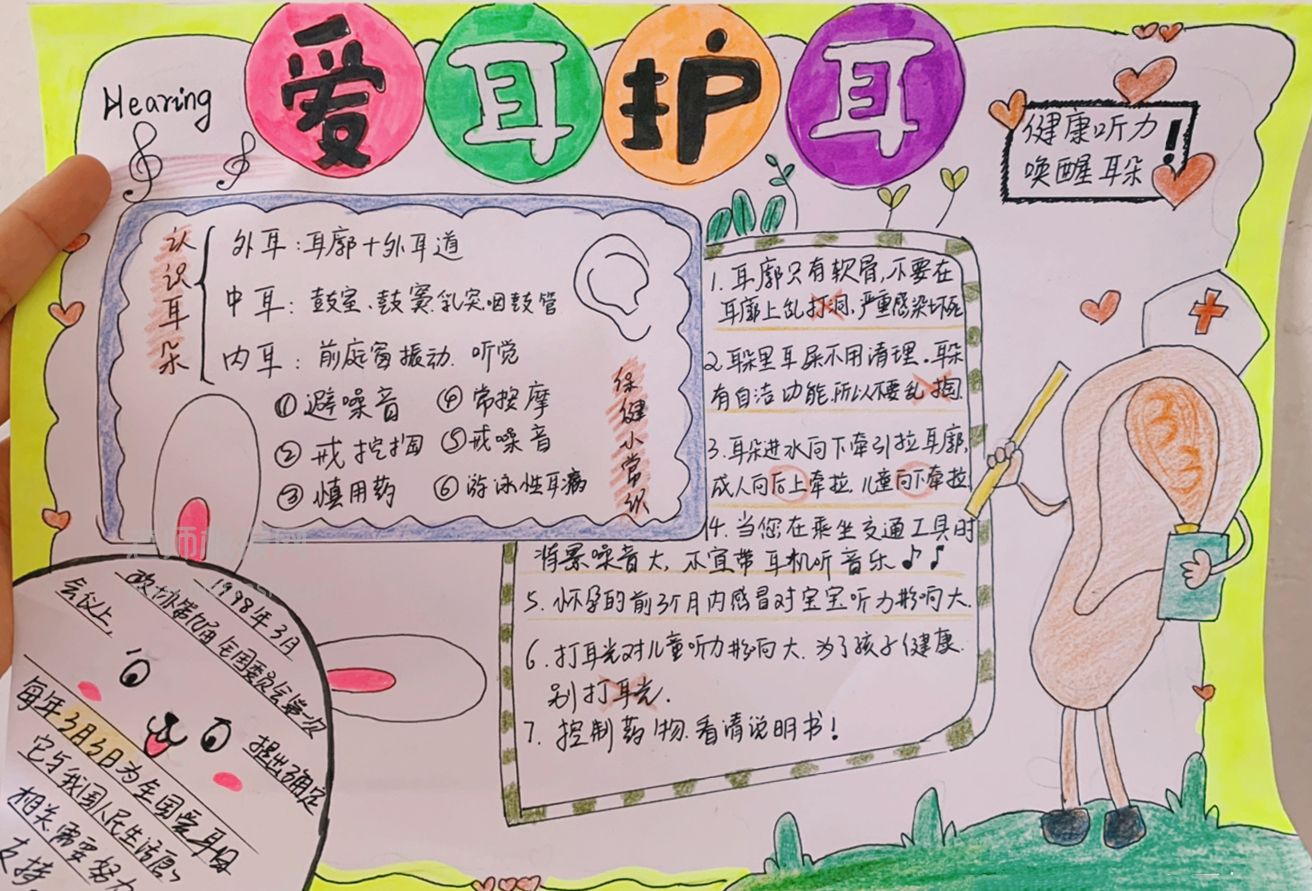 爱耳护耳
Hearing
健康听力!
唤醒耳朵
认识耳朵
外耳:耳廓+外耳道
中耳:鼓室、鼓窦.乳突.咽鼓管
内耳:前庭窗振动.听觉
①避噪音 ④常按摩
②戒挖掏 ⑤戒噪音
③慎用药 ⑥游泳性耳病
保健小常识
1.耳廓只有软骨,不要在
耳廓上乱打洞,严重感染坏死
2.耳朵里耳屎不用清理.耳朵
有自洁功能,所以不要乱掏.
3.耳朵进水向下牵引拉耳廓,
成人向后上牵拉.儿童向下牵拉.
4.当您在乘坐交通工具时
背景噪音大,不宜带耳机听音乐
5.怀孕的前3个月内感冒对宝宝听力影响大.
6.打耳光对儿童听力影响大.为了孩子健康.
别打耳光.
7.控制药物.看清说明书!
1998年3月
政协第九届全国委员会第一次
会议上,
提出确定
每年3月3日为全国爱耳日
它与我国人民生活
相关需要努力
支持